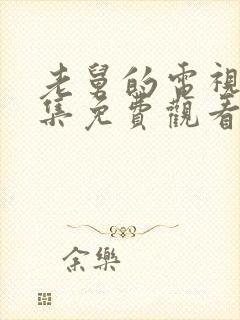 老舅的電視
集免費觀看
余樂